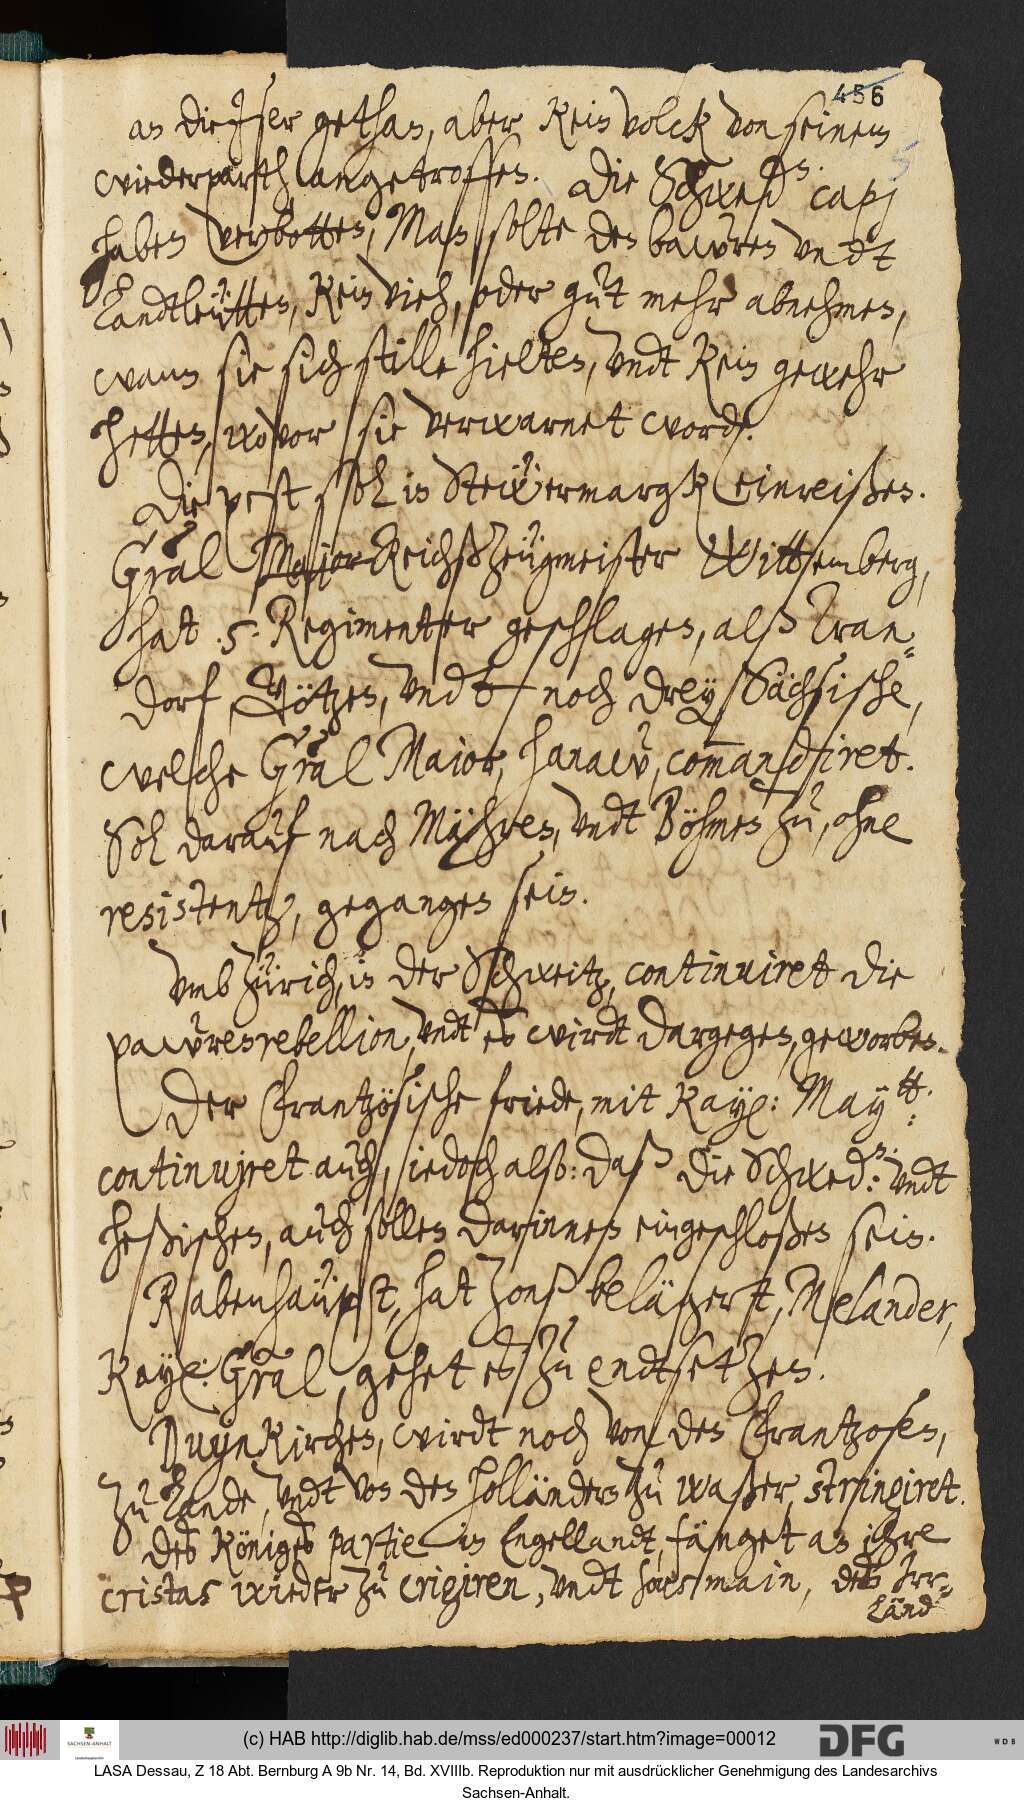 456
an die Iser gethan, aber kein volck von seinem
wiederparth angetroffen. Die Schwed.
haben verbotten, Man solte den bawren vndt
Landtleütten, kein vieh, oder gut mehr abnehmen,
wann sie sich stille hielten, vndt kein gewehr
hetten, wovor sie verwarnet word.
Die pest sol in Steüermargk einreißen.
Gräl Major Reichßzeügmeister Wittemberg,
hat .5. Regimenter geschlagen, alß Tran-
dorf, Götzen, vndt noch drey Sächsische,
welche Gräl Maior, Hanaw, com̄andiret.
Sol darauf nach Mähren, vndt Böhmen zu, ohne
resistentz, gegangen sein.
Vmb Zürich, in der Schweitz, continuiret die
pawrenrebellion, vndt es wirdt dargegen, geworben.
Der Frantzösische friede, mit Kay: May:
continuiret auch, iedoch also: daß die Schwed: vndt
heßischen, auch sollen darinnen eingeschloßen sein.
Rabenhaüpt, hat Zonß belägert, Melander,
Kay: Gräl, gehet es zu endtsetzen.
Duynkirchen, wirdt noch von den Frantzosen,
zu Lande, vndt von den Holländern zu waßer, stringiret.
des Königes partie in Engellandt, fänget an ihre
cristas wieder zu erigiren, vndt der Irr-
Länd
(c) HAB http://diglib.hab.de/mss/ed000237/start.htm?image=00012
SACHSEN-ANHALT
DFG
WDB
LASA Dessau, Z 18 Abt. Bernburg A 9b Nr. 14, Bd. XVIIIb. Reproduktion nur mit ausdrücklicher Genehmigung des Landesarchivs
Sachsen-Anhalt.